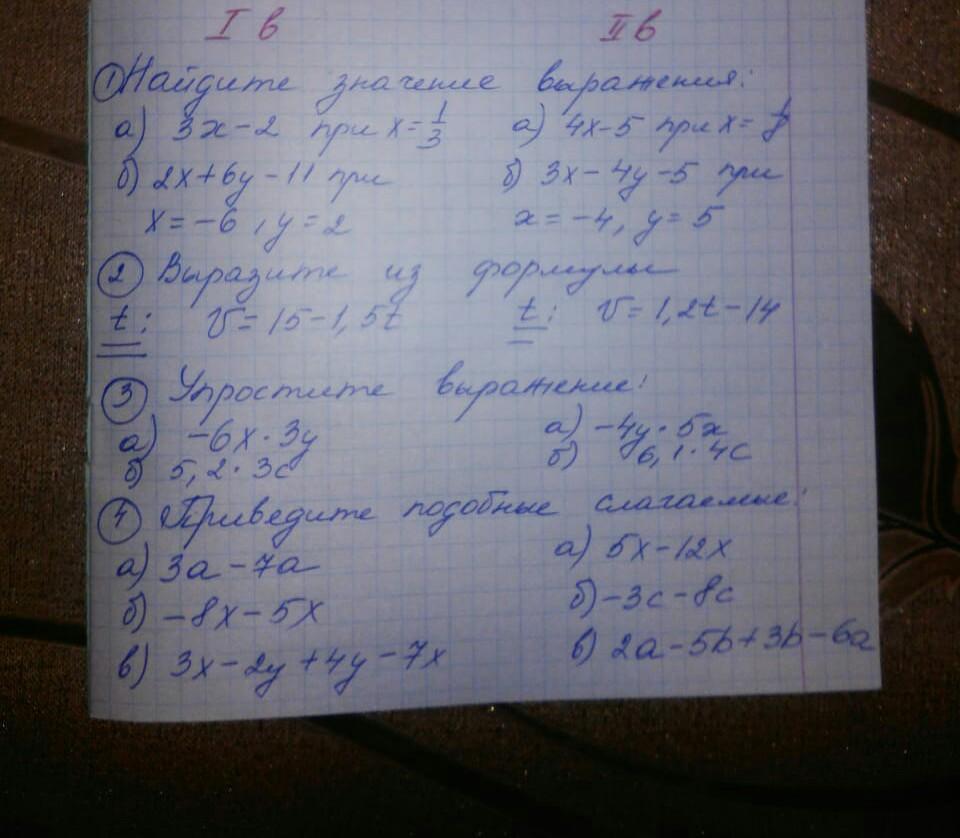 I в II в
① Найдите значение выражения:
а) 3x-2 при x=1/3 а) 4x-5 при x=1/8
б) 2x+6y-11 при б) 3x-4y-5 при
x=-6, y=2 x=-4, y=5
② Выразите из формулы
t: V=15-1,5t t: V=1,2t-14
③ Упростите выражение:
а) -6x·3y а) -4y·5x
б) 5,2·3c б) 6,1·4c
④ Приведите подобные слагаемые:
а) 3a-7a а) 5x-12x
б) -8x-5x б) -3c-8c
в) 3x-2y+4y-7x в) 2a-5b+3b-6a